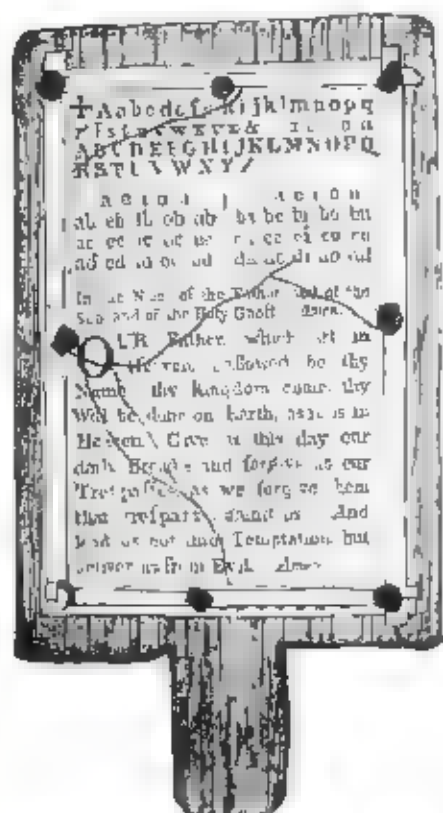 ✠Aabcdefghijklmnopq
rſstuvwxyz& a e i o u
ABCDEFGHIJKLMNOPQ
RSTUVWXYZ
a e i o u a e i o u
ab eb ib ob ub ba be bi bo bu
ac ec ic oc uc ca ce ci co cu
ad ed id od ud da de di do du
In the Name of the Father and of the
Son and of the Holy Ghoſt
OUR Father which art in
Heaven hallowed be thy
Name thy kingdom come, thy
Will be done on Earth, as it is in
Heaven Give us this day our
daily Bread and forgive us our
Treſpaſſes as we forgive them
that treſpaſs againſt us And
lead us not into Temptation but
deliver us from Evil Amen